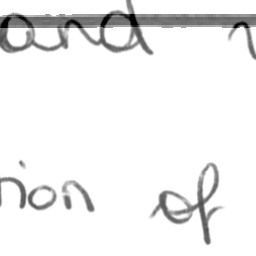 and
nion of